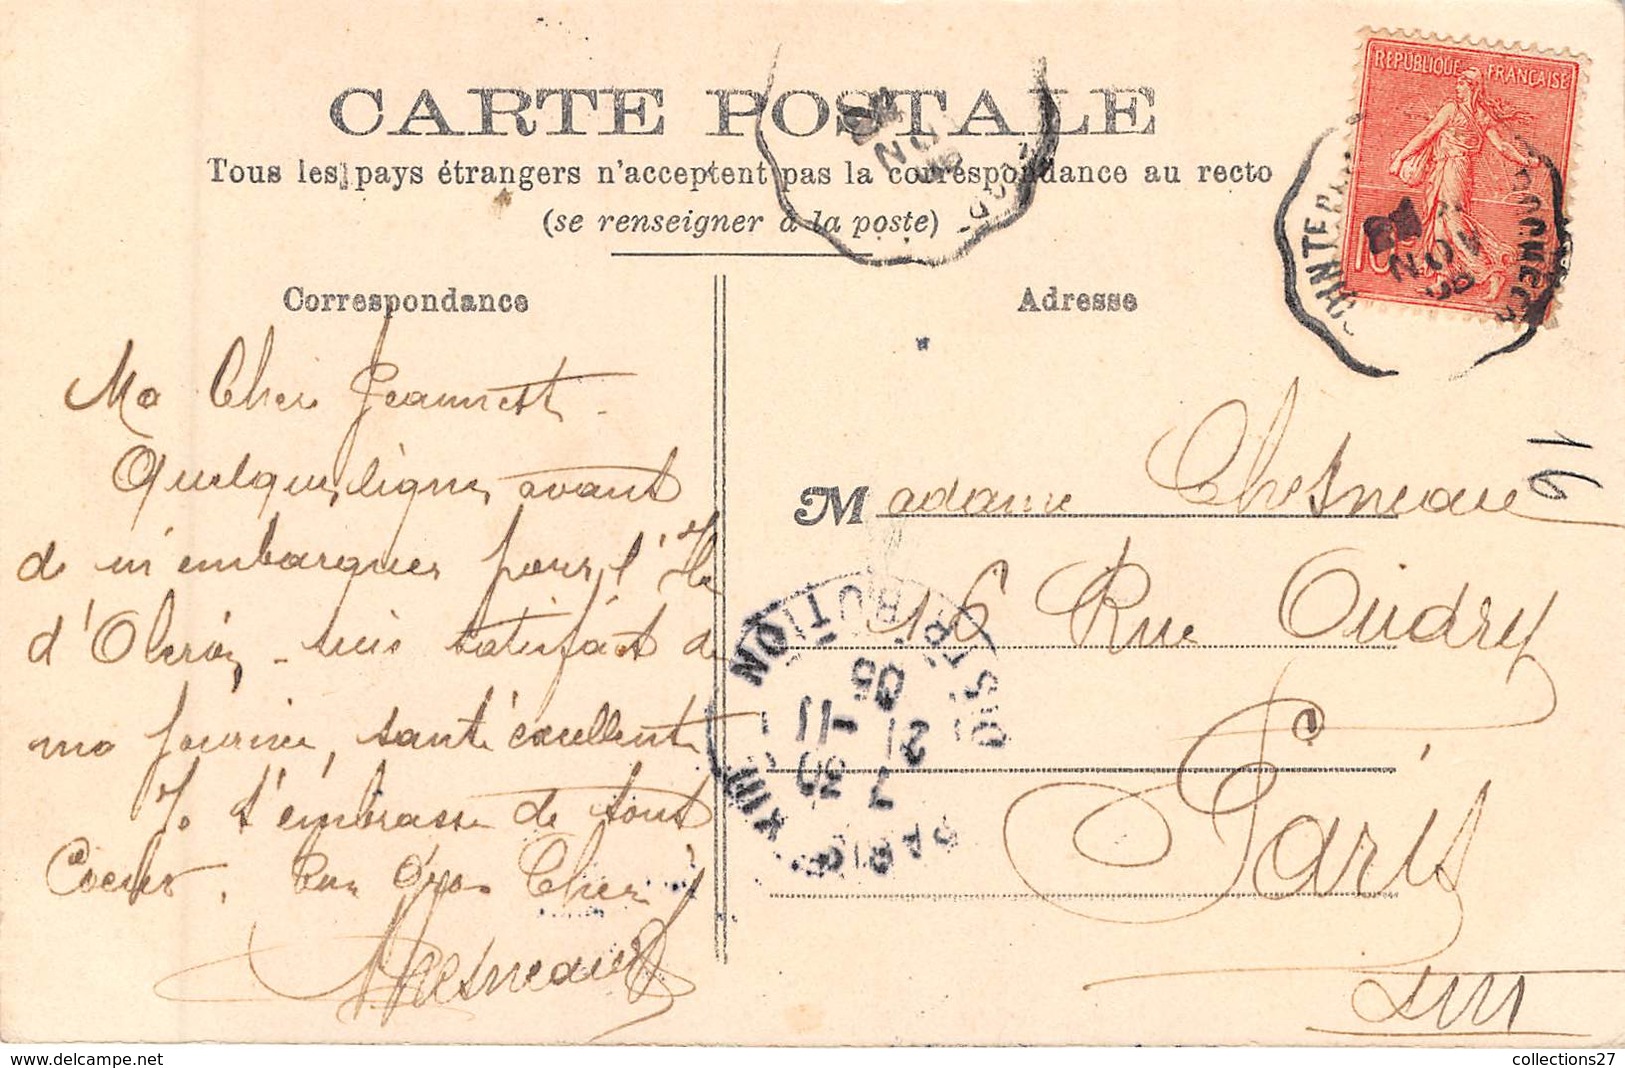 CARTE POSTALE
Tous les pays étrangers n'acceptent pas la correspondance au recto
(se renseigner à la poste)
REPUBLIQUE FRANÇAISE
10
NOV
NOV
Correspondance
Adresse
Ma Cher Jeannest
Quelques lignes avant
de m'embarquer pour l'Ile
d'Oleron, suis satisfait de
ma journée, santé excellente
Je t'embrasse de tout
Coeur. Ton Cher
Chesneau
Madame Chesneau
16
16 Rue Oudry
Paris
PARIS XIII
DISTRIBUTION
7 30
21 -11
05
collections27